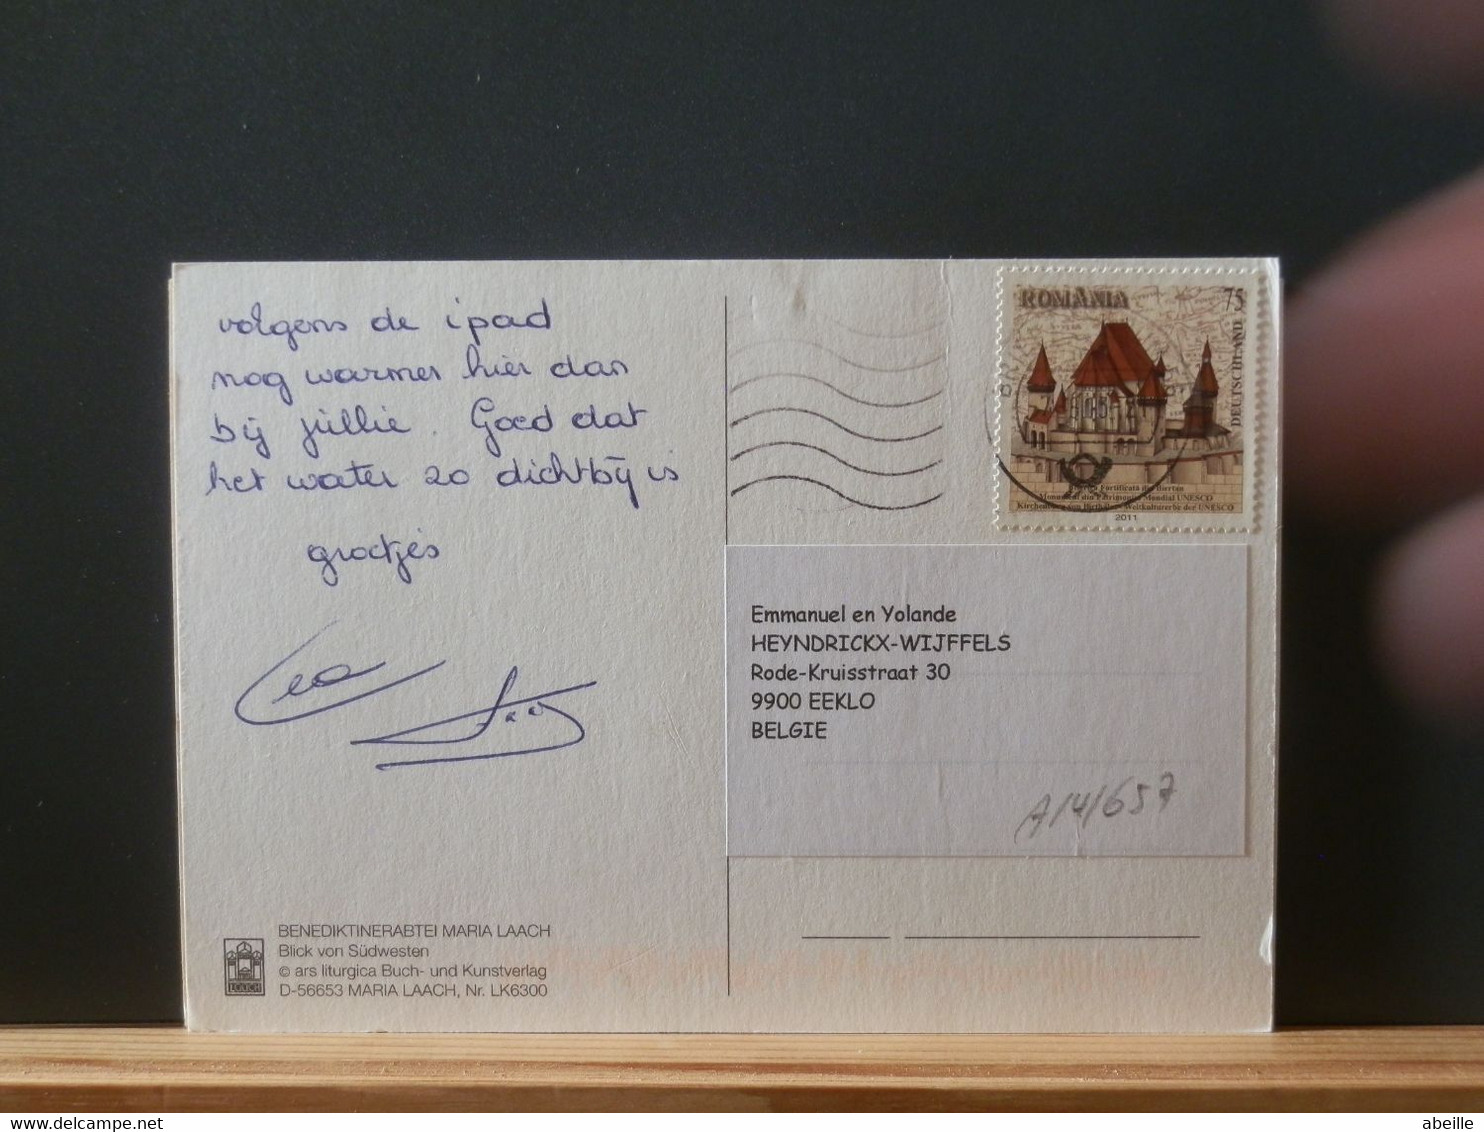 volgens de ipad
nog warmer hier dan
bij jullie. Goed dat
het water zo dichtbij is
groetjes
ROMÂNIA 75
DEUTSCHLAND
Monument din Patrimoniul Mondial UNESCO
Weltkulturerbe der UNESCO
2011
Emmanuel en Yolande
HEYNDRICKX-WIJFFELS
Rode-Kruisstraat 30
9900 EEKLO
BELGIE
A14/657
BENEDIKTINERABTEI MARIA LAACH
Blick von Südwesten
© ars liturgica Buch- und Kunstverlag
D-56653 MARIA LAACH, Nr. LK6300
LAACH
abeille